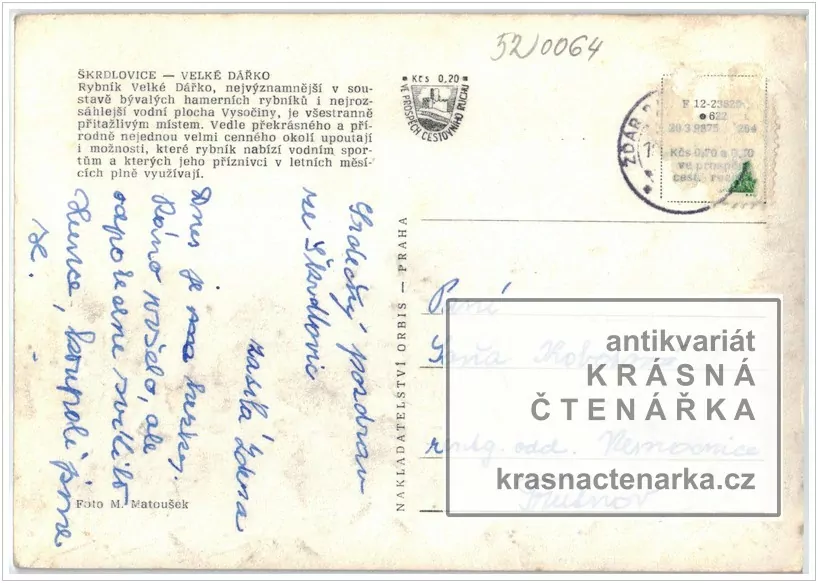 52/0064
ŠKRDLOVICE — VELKÉ DÁŘKO
Rybník Velké Dářko, nejvýznamnější v sou-
stavě bývalých hamerních rybníků i nejroz-
sáhlejší vodní plocha Vysočiny, je všestranně
přitažlivým místem. Vedle překrásného a pří-
rodně nejednou velmi cenného okolí upoutají
i možnosti, které rybník nabízí vodním spor-
tům a kterých jeho příznivci v letních měsí-
cích plně využívají.
Kčs 0,20
VE PROSPĚCH CESTOVNÍHO RUCHU
ŽĎÁR
F 12-23
622
Kčs 0,70 a 0,20
ve prospěch
cest.
Srdečný pozdrav
ze Škrdlovic
zasílá Zdena
Dnes je
Ráno pršelo, ale
odpoledne svítilo
slunce, koupali jsme
se.
Foto M. Matoušek
NAKLADATELSTVÍ ORBIS — PRAHA
Paní
odd. Nemocnice
Trutnov
antikvariát
KRÁSNÁ
ČTENÁŘKA
krasnactenarka.cz